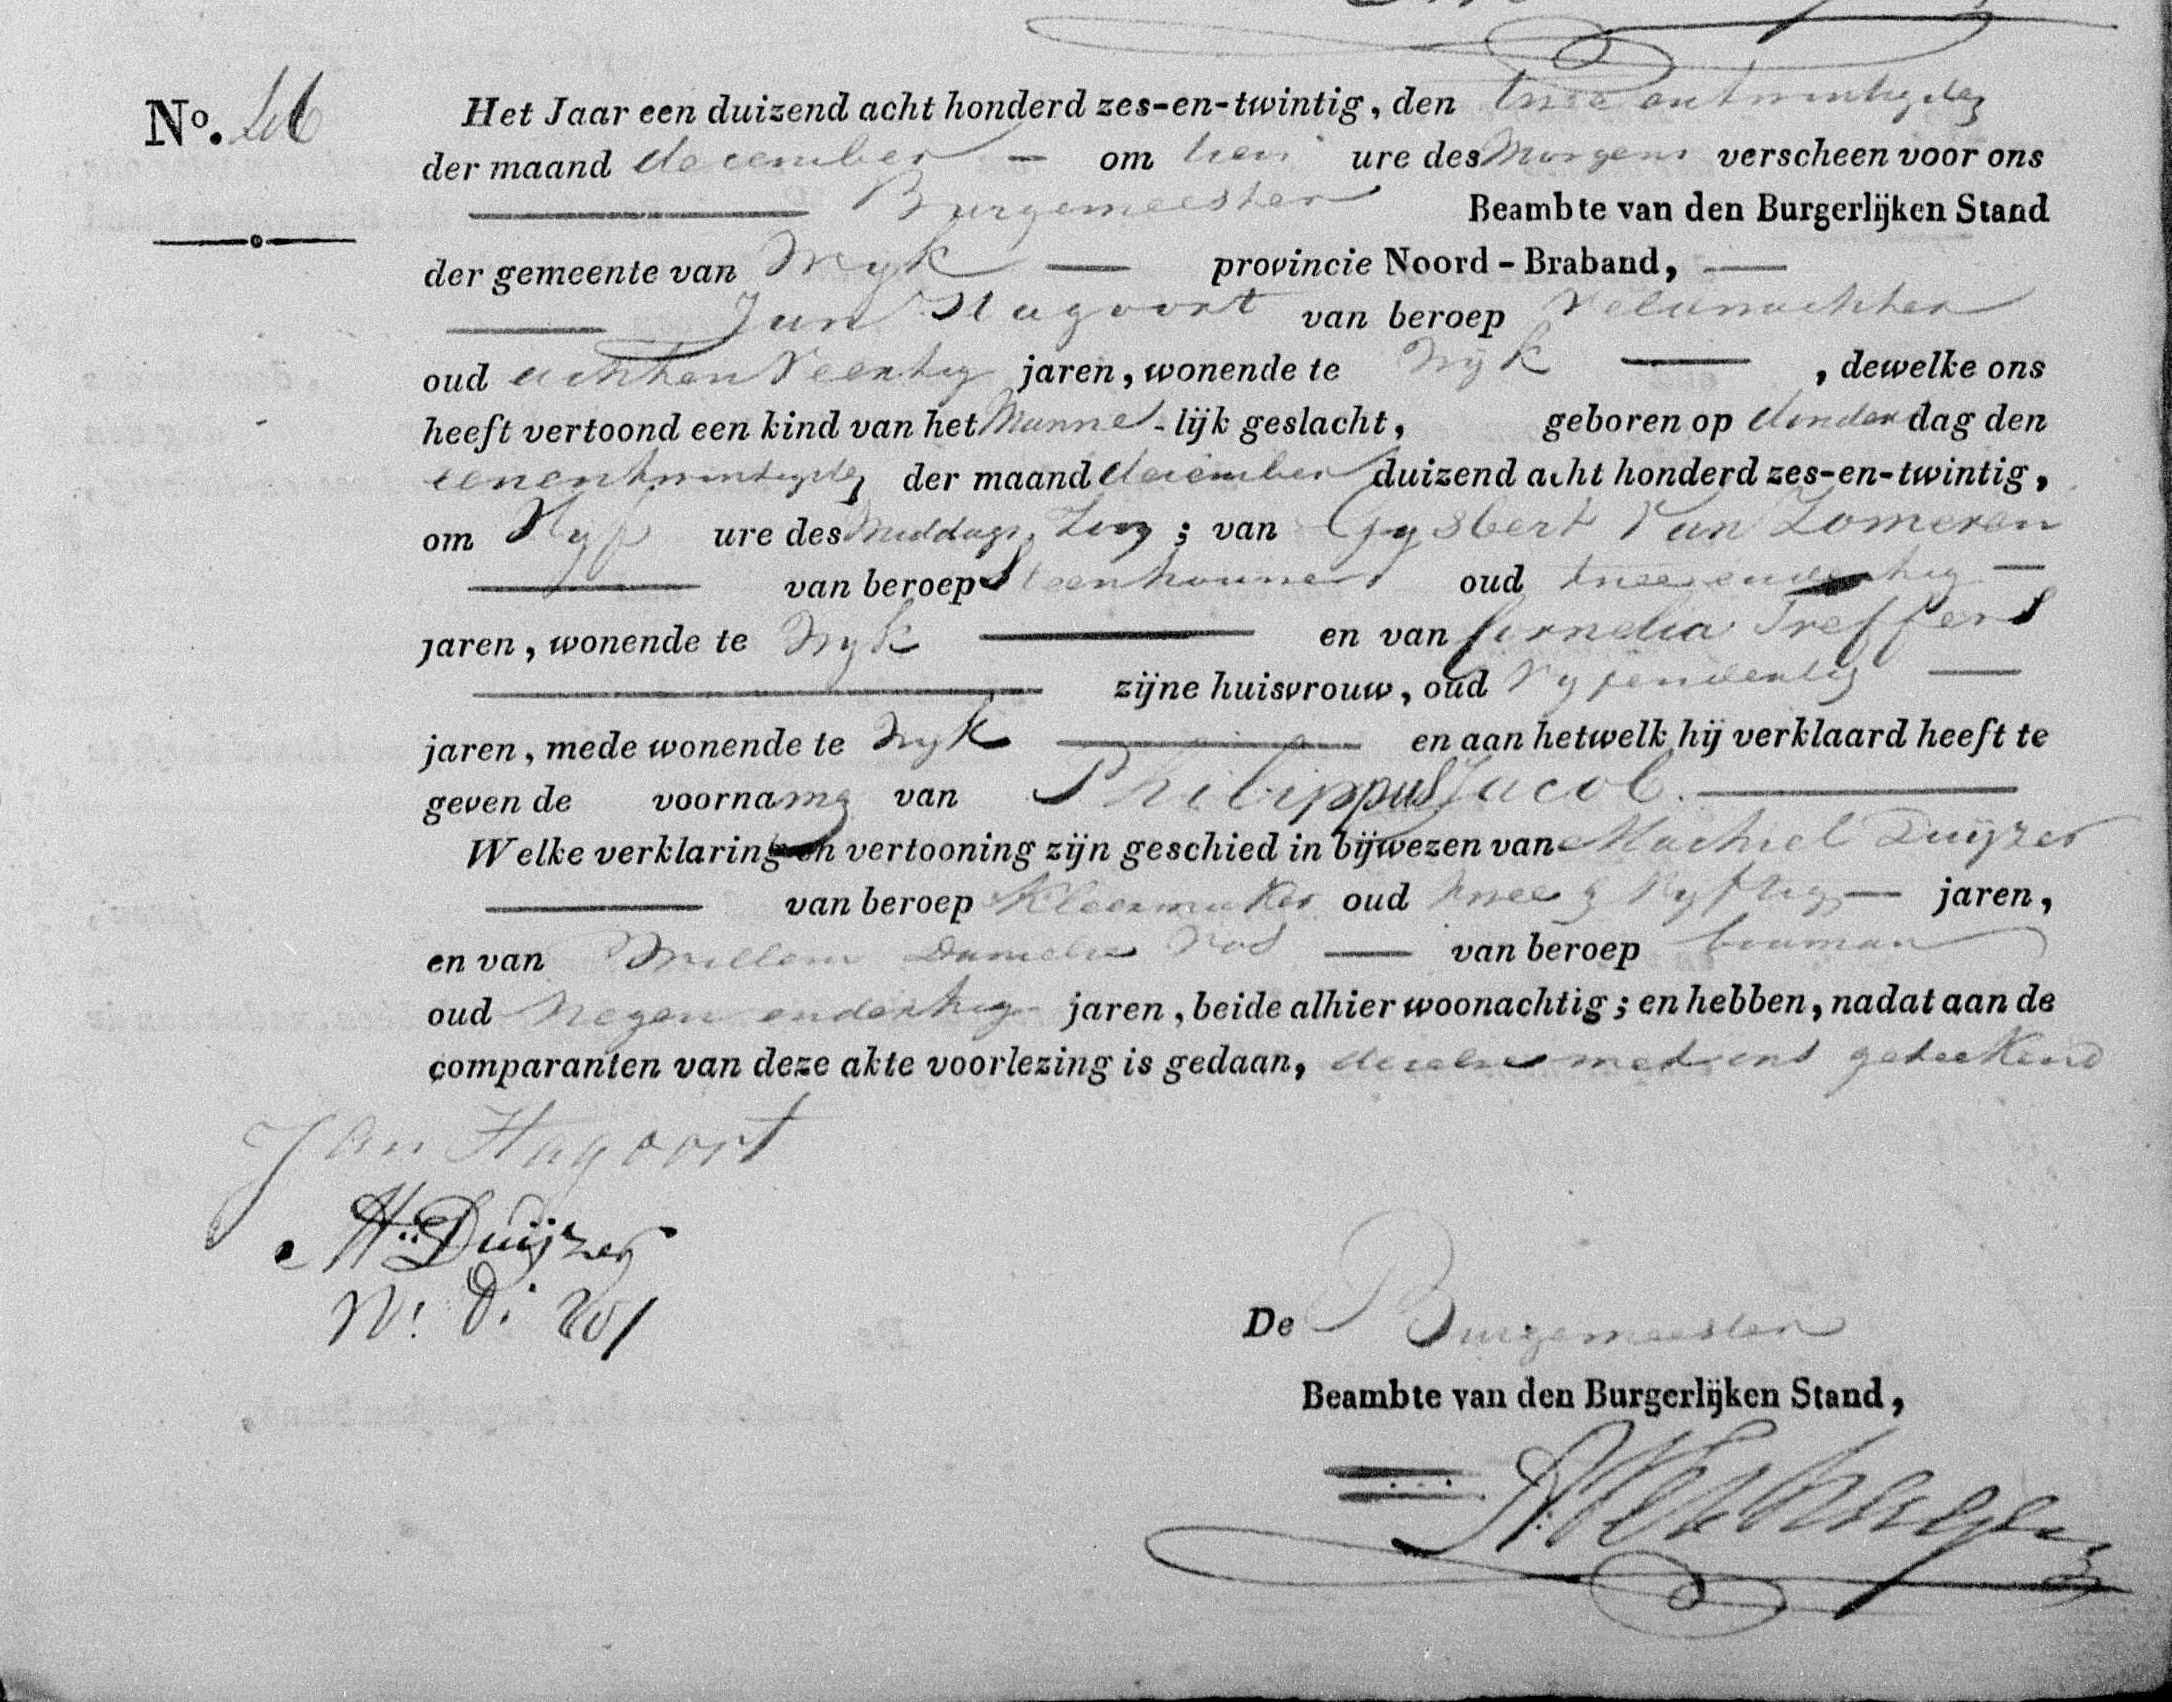 No. 46
Het Jaar een duizend acht honderd zes-en-twintig, den twee entwintigsten
der maand december - om tien ure des Morgens verscheen voor ons
Burgemeester Beambte van den Burgerlijken Stand
der gemeente van Wyk — provincie Noord-Braband, —
Jan Hagoort van beroep Veldwachter
oud achtenveertig jaren, wonende te Wyk — , dewelke ons
heeft vertoond een kind van het Manne-lijk geslacht, geboren op donder dag den
eenentwintigsten der maand december duizend acht honderd zes-en-twintig,
om Vyf ure des middags ; van Gysbert Van Zomeren
van beroep Steenhouwer oud tweeendertig —
jaren, wonende te Wyk — en van Cornelia Treffers
zijne huisvrouw, oud Vyfendertig —
jaren, mede wonende te Wyk — en aan hetwelk hij verklaard heeft te
geven de voorname van Philippus Jacob.
Welke verklaring en vertooning zijn geschied in bijwezen van Machiel Duijzer
van beroep Kleermaker oud twee & Vyftig — jaren,
en van Willem Danielse Vos — van beroep bouman
oud negen endertig jaren, beide alhier woonachtig; en hebben, nadat aan de
comparanten van deze akte voorlezing is gedaan, dezelve met ons geteekend
Jan Hagoort
M: Duijzer
W: D: Vos
De Burgemeester
Beambte van den Burgerlijken Stand,